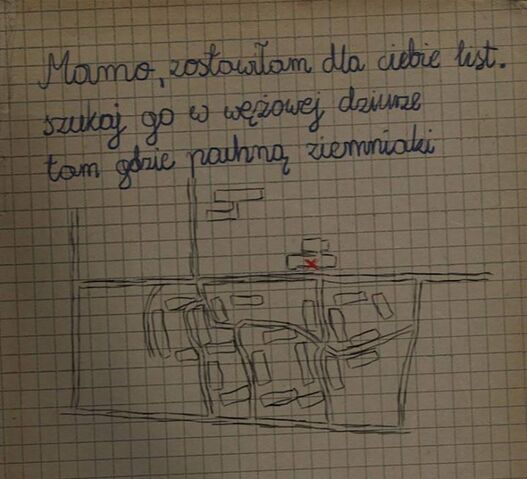 Mamo, zostawiłam dla ciebie list.
szukaj go w wężowej dziurze
tam gdzie pachną ziemniaki